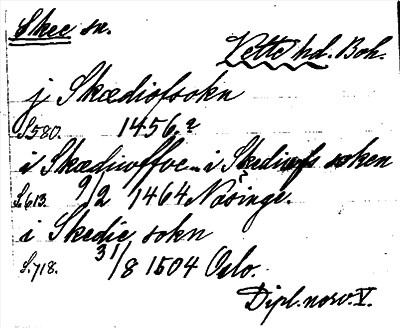 Skee sn.
Vette hd. Boh.
j Skædiofsokn
S. 580. 1456.
i Skædiuoffve i Skediuofs soken
S. 613. 9/2 1464 Näsinge.
i Skedie sokn
S. 718. 31/8 1504 Oslo.
Dipl. norv. V.